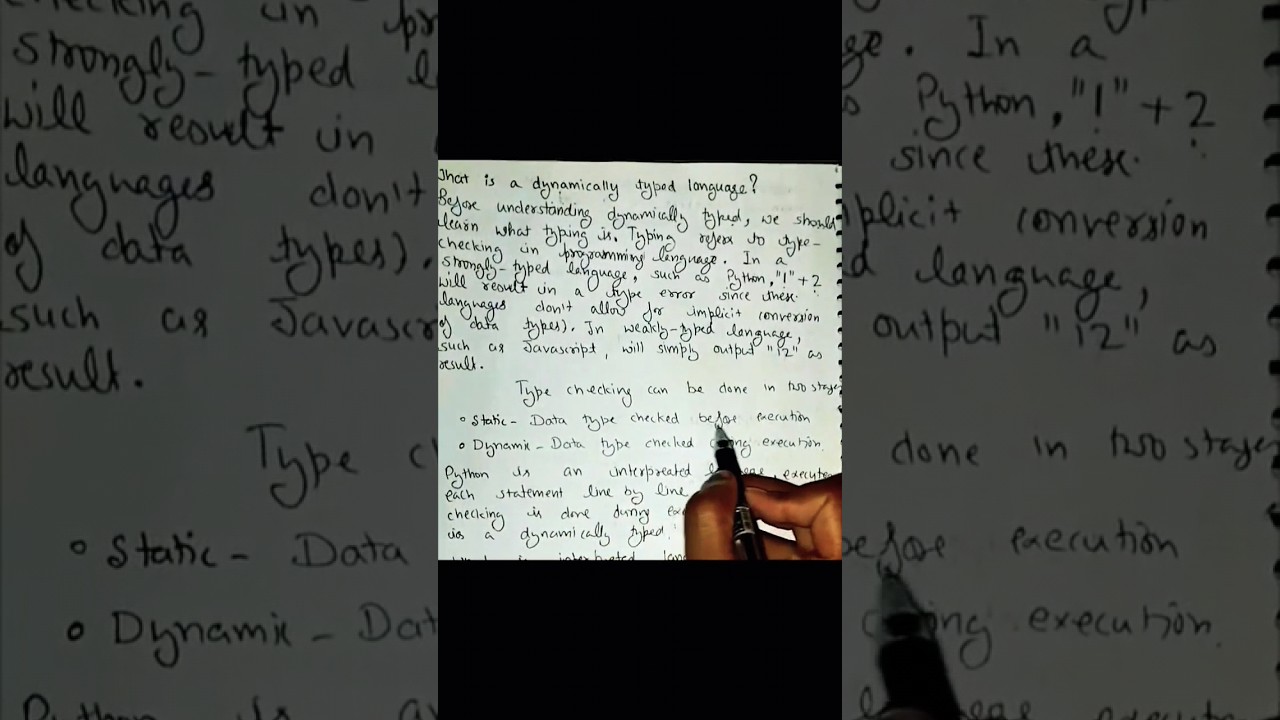 What is a dynamically typed language?
Before understanding dynamically typed, we should
learn what typing is. Typing refers to type-
checking in programming language. In a
strongly-typed language, such as Python, "1" + 2
will result in a type error since these
languages don't allow for implicit conversion
of data types). In weakly-typed language,
such as Javascript, will simply output "12" as
result.
Type checking can be done in two stages
• Static - Data type checked before execution
• Dynamic - Data type checked during execution.
Python is an interpreated executes
each statement line by line
checking is done during
is a dynamically typed.
is interpreted